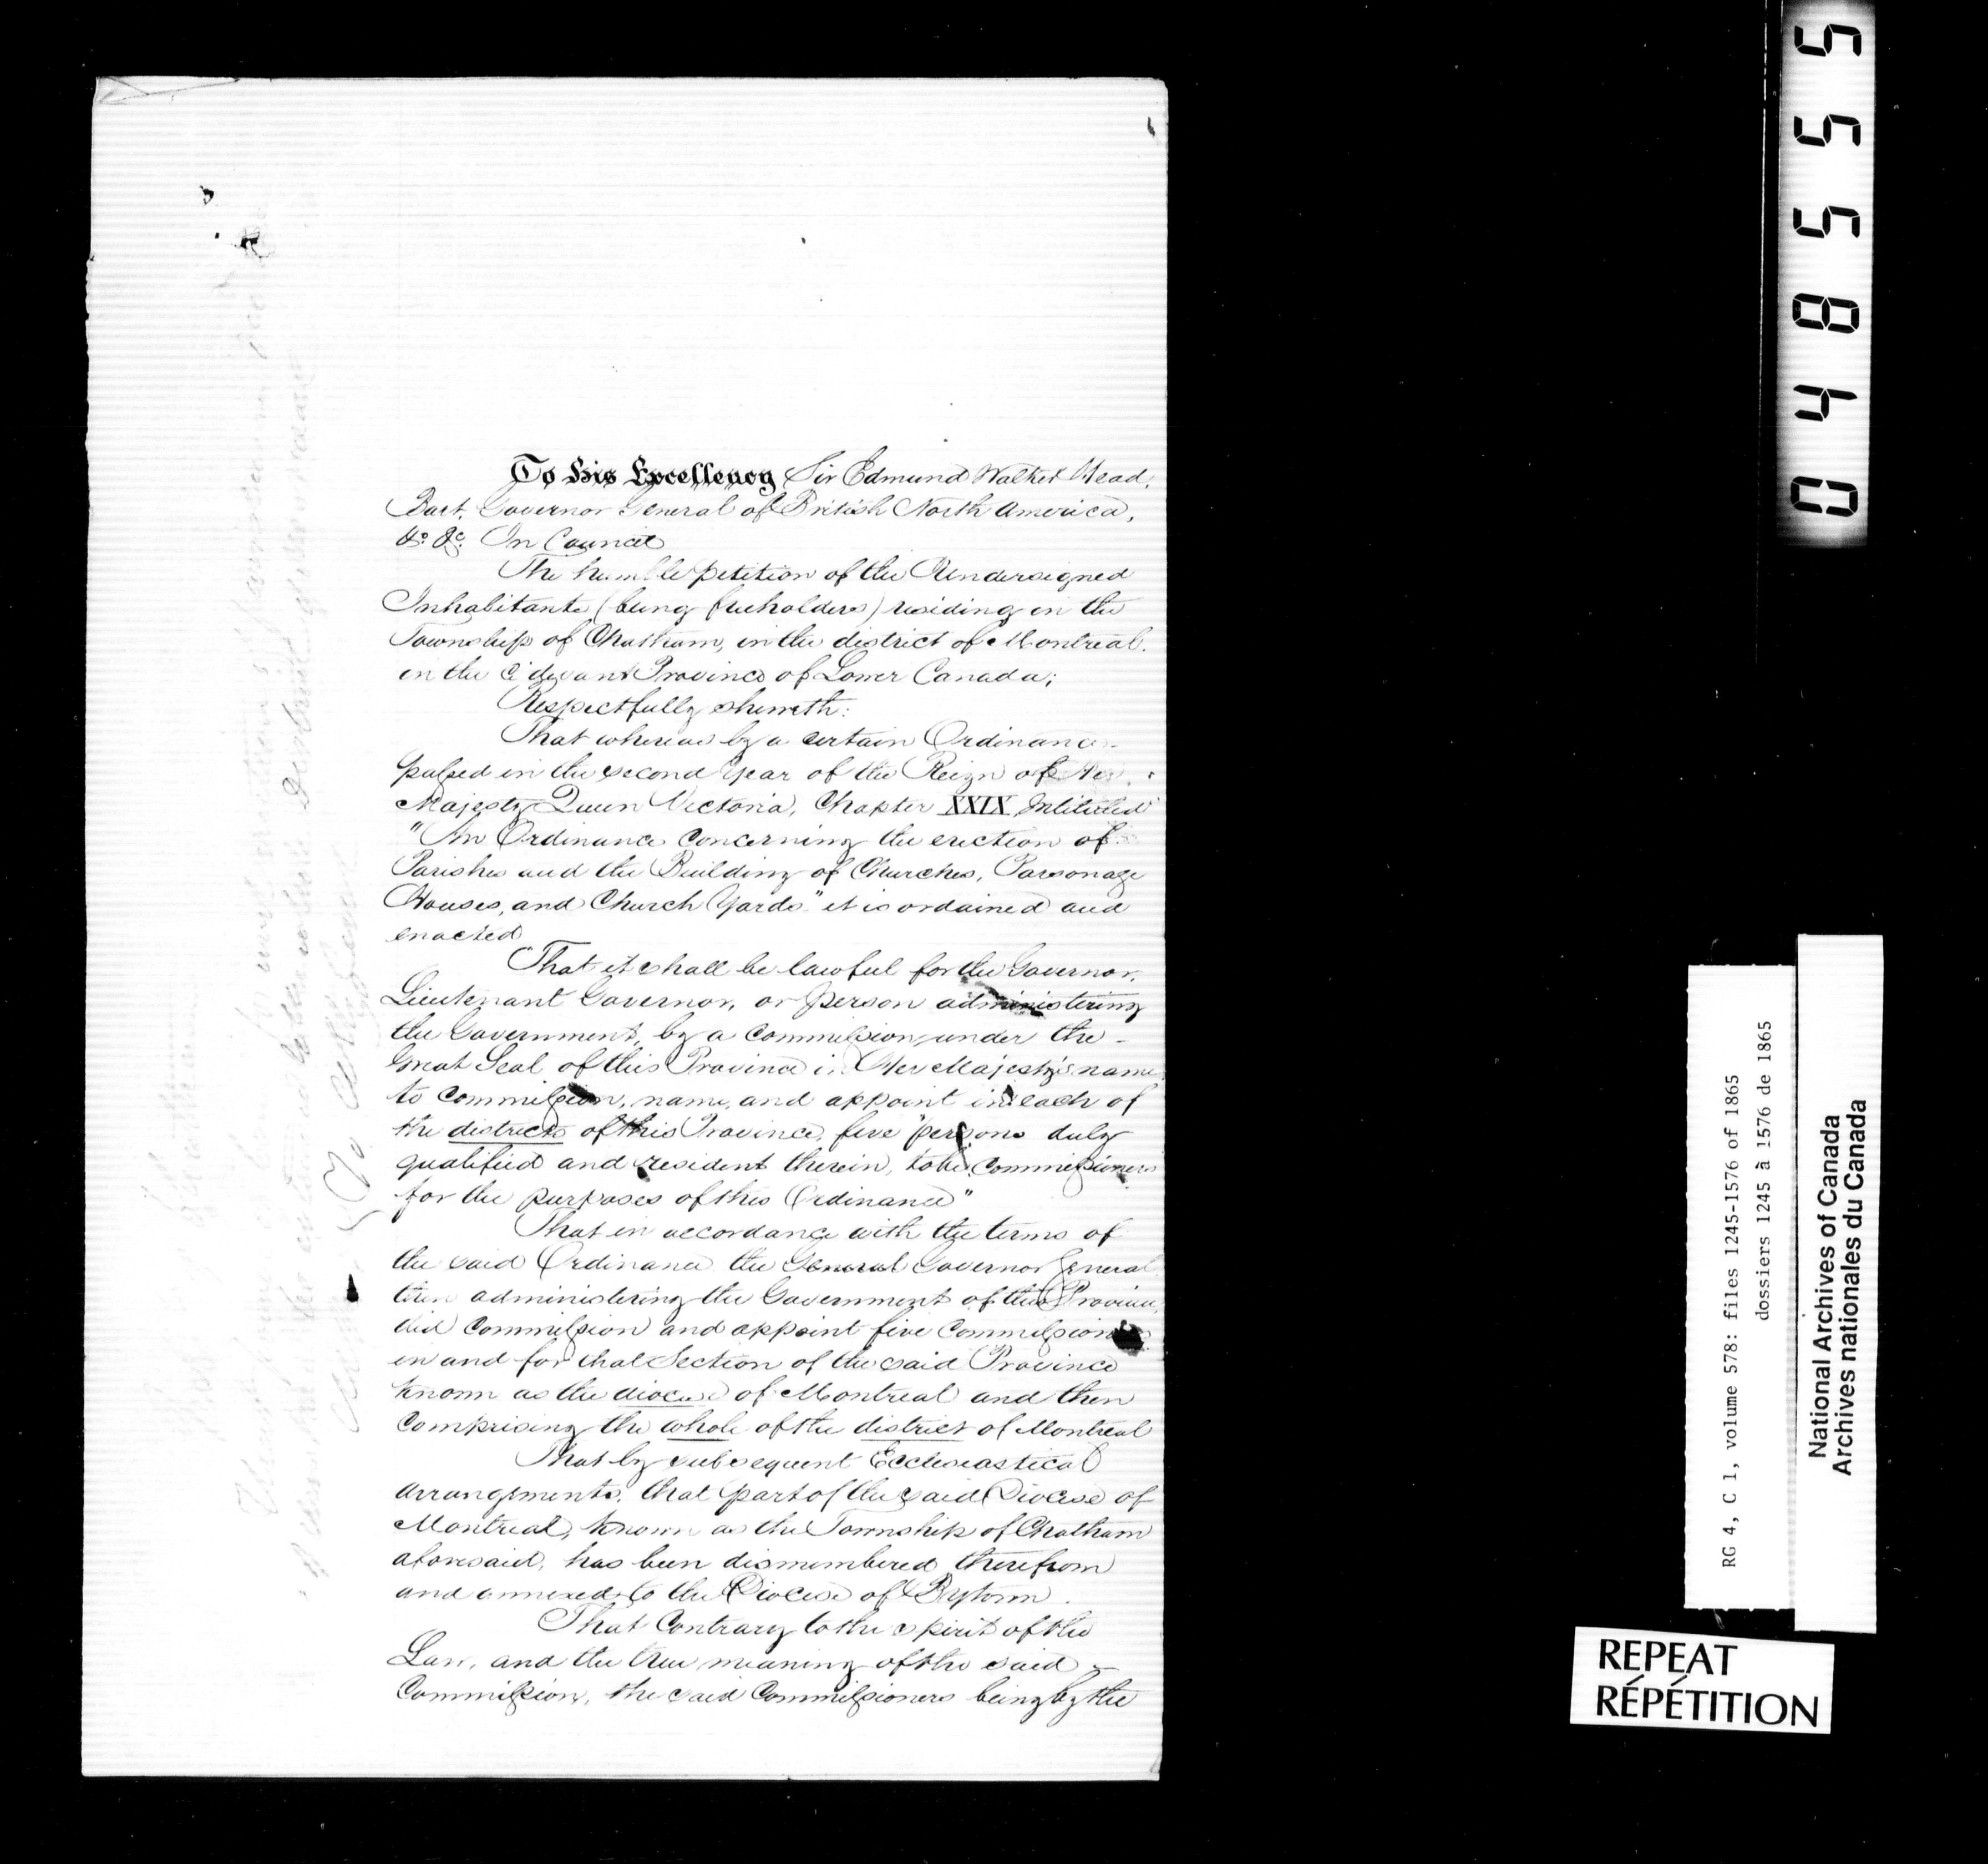 To His Excellency Sir Edmund Walker Head,
Bart. Governor General of British North America,
&c. &c. In Council
The humble petition of the Undersigned
Inhabitants (being freeholders) residing in the
Township of Chatham, in the district of Montreal.
in the Ci devant Province of Lower Canada;
Respectfully sheweth:
That whereas by a certain Ordinance
passed in the second year of the Reign of Her
Majesty Queen Victoria, Chapter XXIX, Intituled
"An Ordinance concerning the erection of
Parishes and the Building of Churches, Parsonage
Houses, and Church Yards" it is ordained and
enacted
"That it shall be lawful for the Governor,
Lieutenant Governor, or person administering
the Government, by a Commission, under the
Great Seal of this Province in Her Majesty's name
to Commission, name, and appoint in each of
the districts of this Province, five "persons duly
qualified and resident therein, to be Commissioners
for the purposes of this Ordinance"
That in accordance with the terms of
the said Ordinance the General Governor General
then administering the Government of this Province,
did Commission and appoint five Commissioners
in and for that Section of the said Province
known as the diocese of Montreal and then
Comprising the whole of the district of Montreal
That by subsequent Ecclesiastical
arrangements, that part of the said Diocese of
Montreal, known as the Township of Chatham
aforesaid, has been dismembered therefrom
and annexed to the Diocese of Bytown.
That Contrary to the spirit of the
Law, and the true meaning of the said
Commission, the said Commissioners being by the
04855
RG 4, C 1, volume 578: files 1245-1576 of 1865
dossiers 1245 à 1576 de 1865
National Archives of Canada
Archives nationales du Canada
REPEAT
RÉPÉTITION